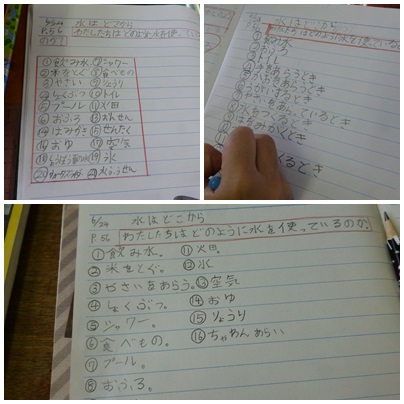 6/24 水はどこから
P.56 わたしたちはどのように水を使っている
のか?
①飲み水 ②シャワー
②米をとぐ ⑨食べもの
③やさい ⑩りょうり
④しょくぶつ ⑪トイレ
⑤プール ⑫火田
⑥おふろ
⑦はみがき ⑮せんたく
⑱おゆ ⑰空気
氷
水ふうせん
水はどこから
わたしたちはどのように水を使っているの
①飲み水
②おふろ
③トイレ
手をあらうとき
うがいするとき
はみがくとき
くるとき
6/24 水はどこから
P.56 わたしたちはどのように水を使っているのか。
①飲み水。 ⑪火田
②米をとぐ。 ⑫氷
③やさいをあらう。⑬空気
④しょくぶつ。 ⑭おゆ
⑤シャワー。 ⑮りょうり
⑥食べもの。 ⑯ちゃわんあらい
⑦プール。
⑧おふろ。